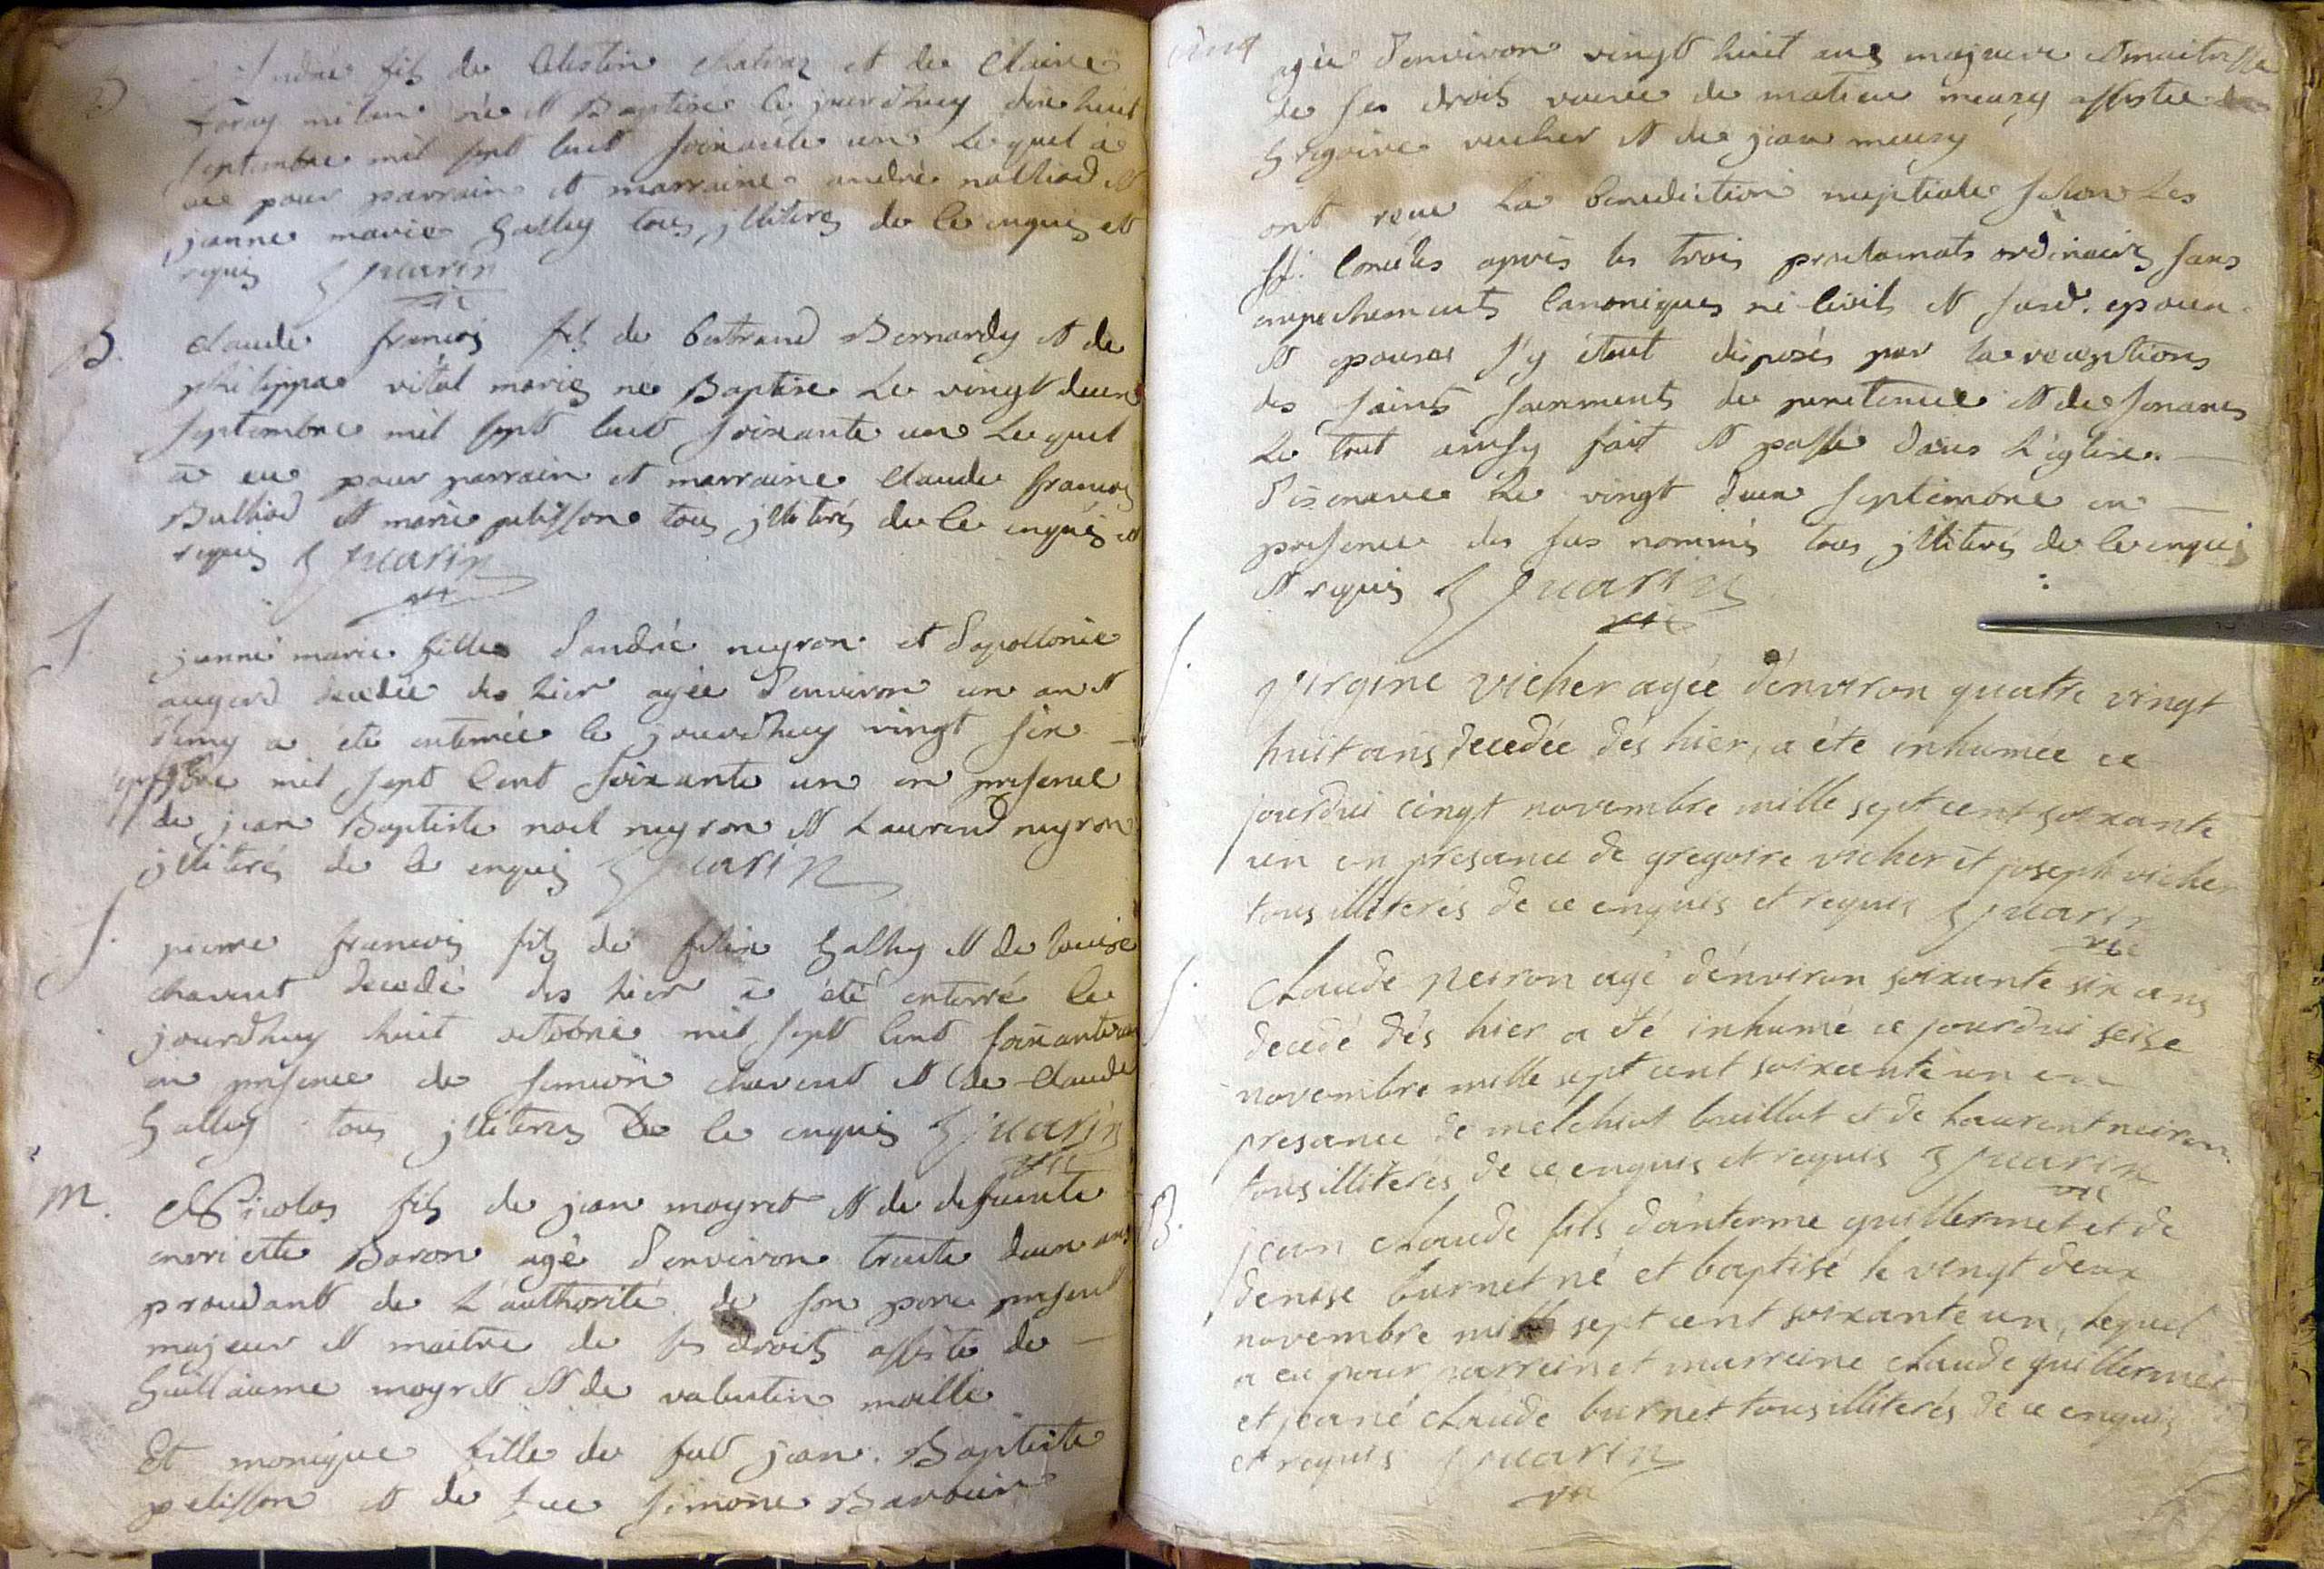 B
André fils de Celestin et de Claire
né et Baptisé ce jourdhuy dix huit
septembre mil sept cent soixante un lequel a
eu pour parrain et marraine andré et
janne marie Gallay tous jlliterés de ce enquis et
requis Guarin
vic
B. Claude francois fils de bertrand Bernardy et de
philippa vital mariés né Baptise le vingt deux
septembre mil sept cent soixante un lequel
a eu pour parrain et marraine claude francois
Bulliod et marie pelisson tous jlliterés de ce enquis et
requis Guarin
vic
S. janne marie fille d'andré neyron et d'apollonie
auger decedée des hier agée d'environ un an et
demy a été enterrée ce jourdhuy vingt six
septbre mil sept cent soixante un en presence
de jean Baptiste noel neyron et Laurend neyron
jlliterés de ce enquis Guarin
S. pierre francois fils de felix Gallay et de louise
chavent decedé des hier a été enterré ce
jourdhuy huit octobre mil sept cent soixante un
en presence de simeon chavent et de claude
Gallay tous jlliterés de ce enquis Guarin
vic
M. Nicolas fils de jean moyret et de defuncte
mariette Baron agé d'environ trente deux ans
procedant de l'authorité de son pere present
majeur et maitre de ses droits assisté de
Guillaume moyret et de valentin maille
Et monique fille de feu jean Baptiste
pelisson et de feue simone Barouin
agée d'environ vingt huit ans majeure et maitresse
de ses droits veuve de matieu meury assistée de
Gregoire vucher et de jean meury
ont reçue la benediction nuptiale selon les
SS. Conciles apres les trois proclamats ordinaires sans
empechements Canoniques ni civils et epoux
et epouse s'y étant disposés par la reception
des saints sacrements de penitence et de
Le tout ainsy fait et passé dans l'église
d'isenave Le vingt deux septembre en
presence des sus nommés tous jlliterés de ce enquis
et requis Guarin
vic
S. Virgine vicher agée d'environ quatre vingt
huit ans decedée dés hier, a été inhumée ce
jourdui cingt novembre mille sept cent soixante
un en presance de gregoire vicher et joseph vicher
tous illiterés de ce enquis et requis Guarin
vic
S. Claude neiron agé d'environ soixante six ans
decedé dés hier a été inhumé ce jourdui seise
novembre mille sept cent soixante un en
presance de melchiot bouillut et de Laurent neiron
tous illiterés de ce enquis et requis Guarin
vic
B. jean claude fils d'anterme guillermet et de
denise burnet né et baptisé le vingt deux
novembre mille sept cent soixante un, lequel
a eu pour parrein et marreine claude guillermet
et jeane claude burnet tous illiterés de ce enquis
et requis Guarin
vic